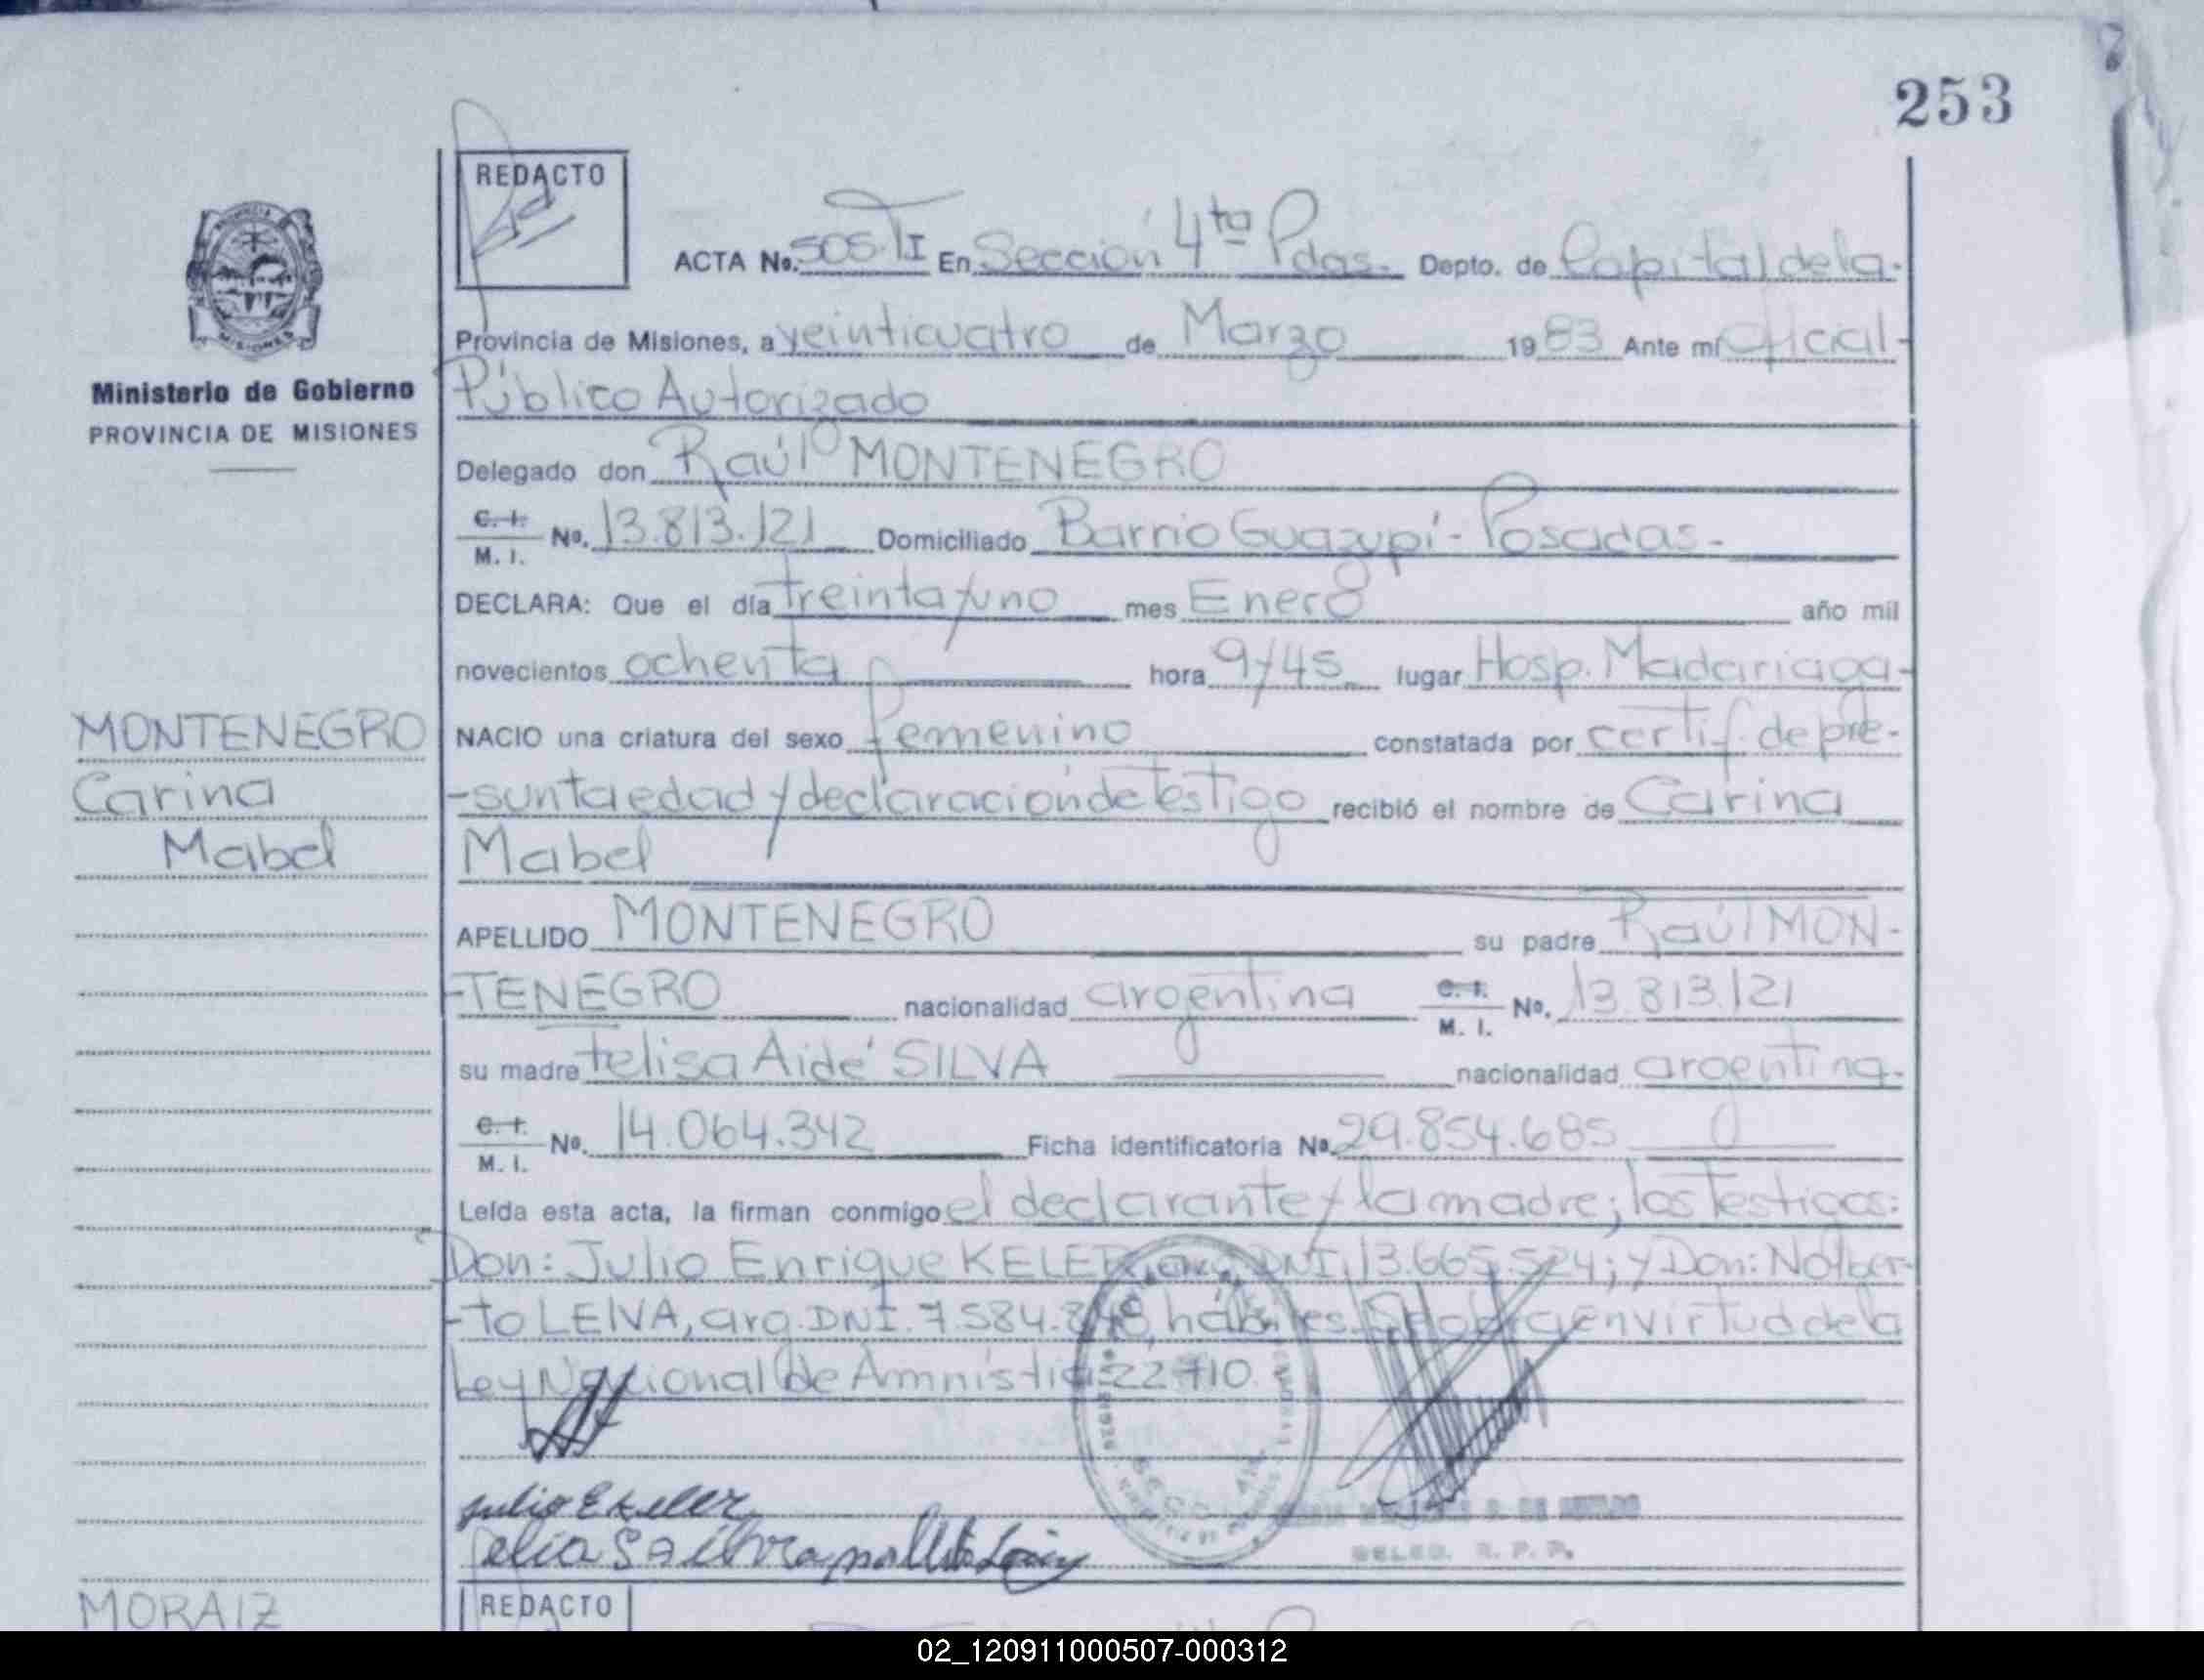 253
REDACTO
ACTA No. 505 TI En Sección 4ta Pdas. Depto. de Capital de la
Provincia de Misiones, a veinticuatro de Marzo 1983 Ante mí Oficial
Público Autorizado
Ministerio de Gobierno
PROVINCIA DE MISIONES
Delegado don Raúl MONTENEGRO
C. I. M. I. No. 13.813.121 Domiciliado Barrio Guazupí - Posadas -
DECLARA: Que el día treinta y uno mes Enero año mil
novecientos ochenta hora 9/45 lugar Hosp. Madariaga -
MONTENEGRO
Carina
Mabel
NACIO una criatura del sexo femenino constatada por certif. de pre-
-sunta edad y declaración de testigo recibió el nombre de Carina
Mabel
APELLIDO MONTENEGRO su padre Raúl MON-
-TENEGRO nacionalidad argentina C. I. M. I. No. 13.813.121
su madre Felisa Aidé SILVA nacionalidad argentina.
C. I. M. I. No. 14.064.342 Ficha identificatoria No. 29.854.685
Leída esta acta, la firman conmigo el declarante y la madre; los testigos:
Don: Julio Enrique KELER, arg. DNI. 13.665.524; y Don: Nolber-
-to LEIVA, arg. DNI. 7.584.848, hábiles. Se labra en virtud de la
Ley Nacional de Amnistia 22410.
Julio E Keler
DELEG. R. P. P.
MORAIZ
REDACTO
02_120911000507-000312